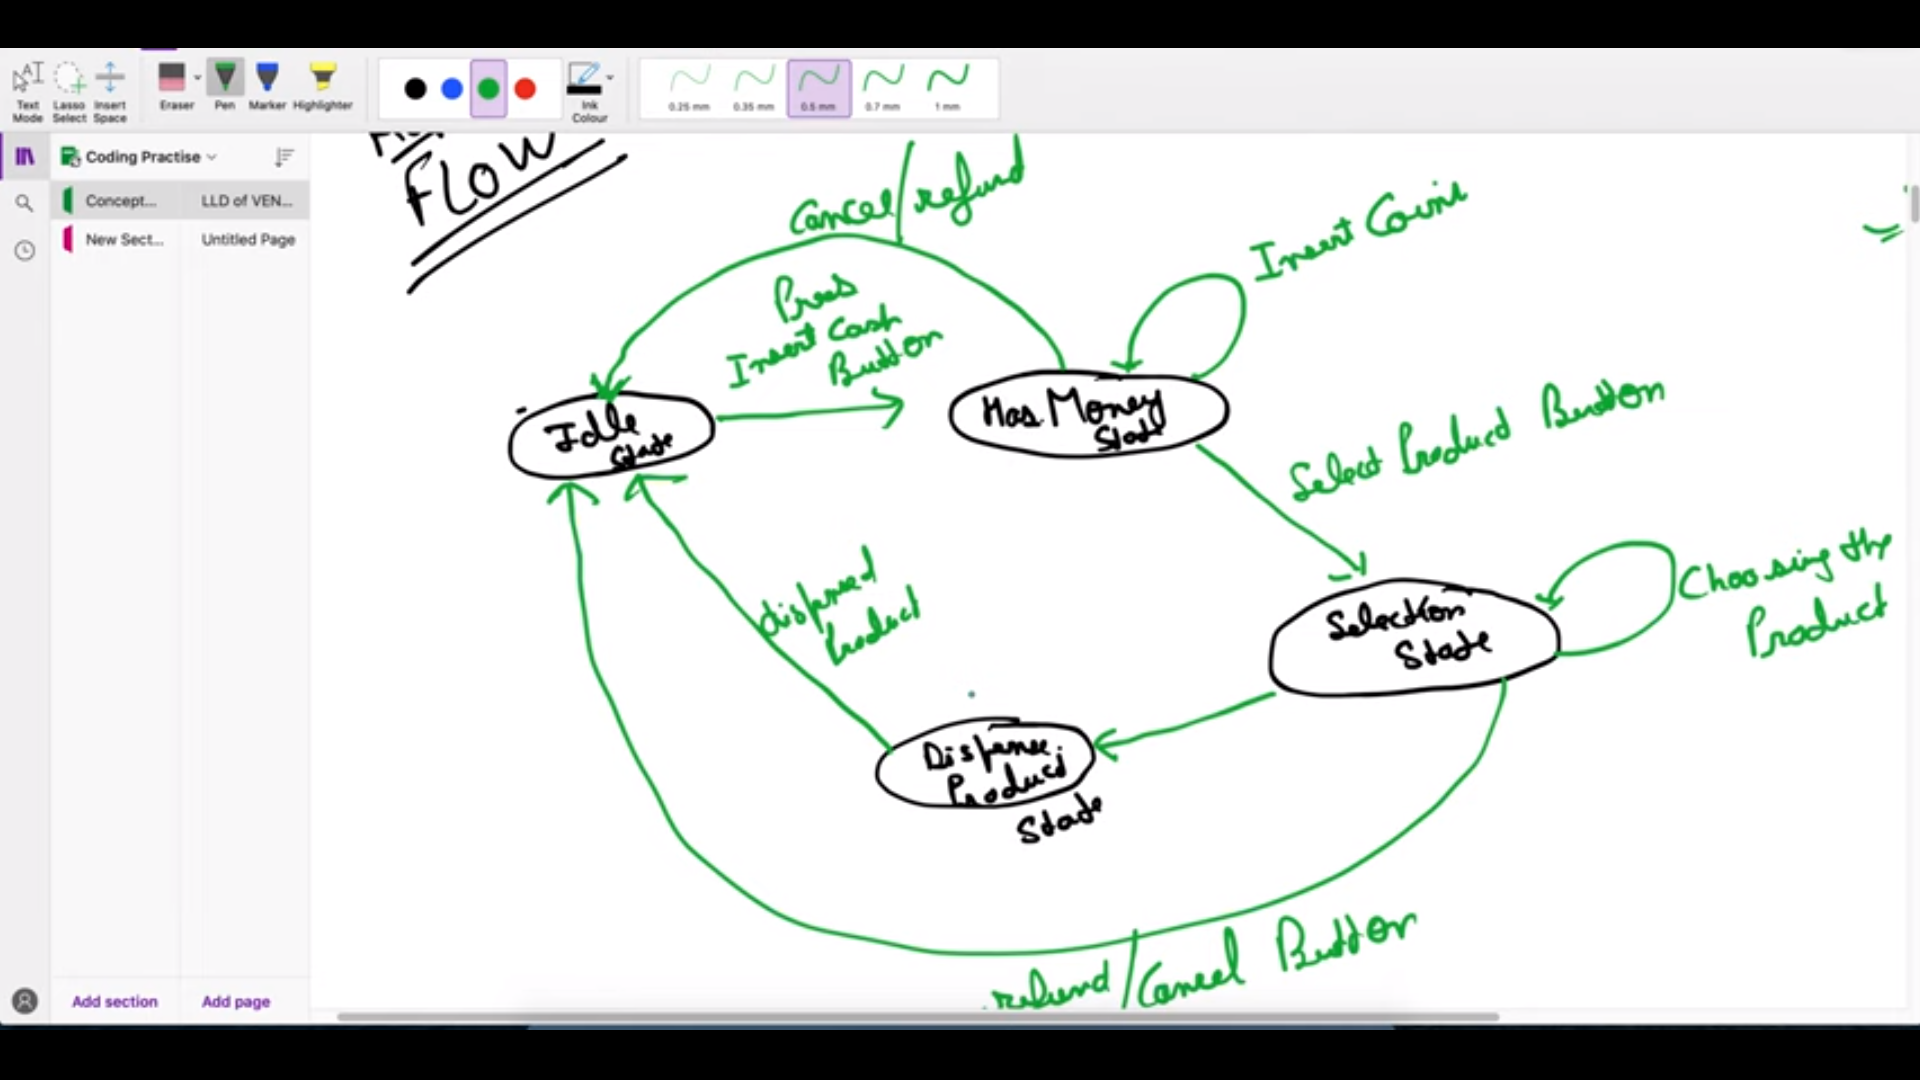 Text Mode
Lasso Select
Insert Space
Eraser
Pen
Marker
Highlighter
Ink Colour
0.25 mm
0.35 mm
0.5 mm
0.7 mm
1 mm
Coding Practise
Concept...
LLD of VEN...
New Sect...
Untitled Page
Add section
Add page
FLOW
Cancel/refund
Press
Insert Cash
Button
Insert Coins
Idle
State
Has Money
State
Select Product Button
Selection
State
Choosing the
Product
Dispensed
Product
Dispense
Product
State
refund/Cancel Button